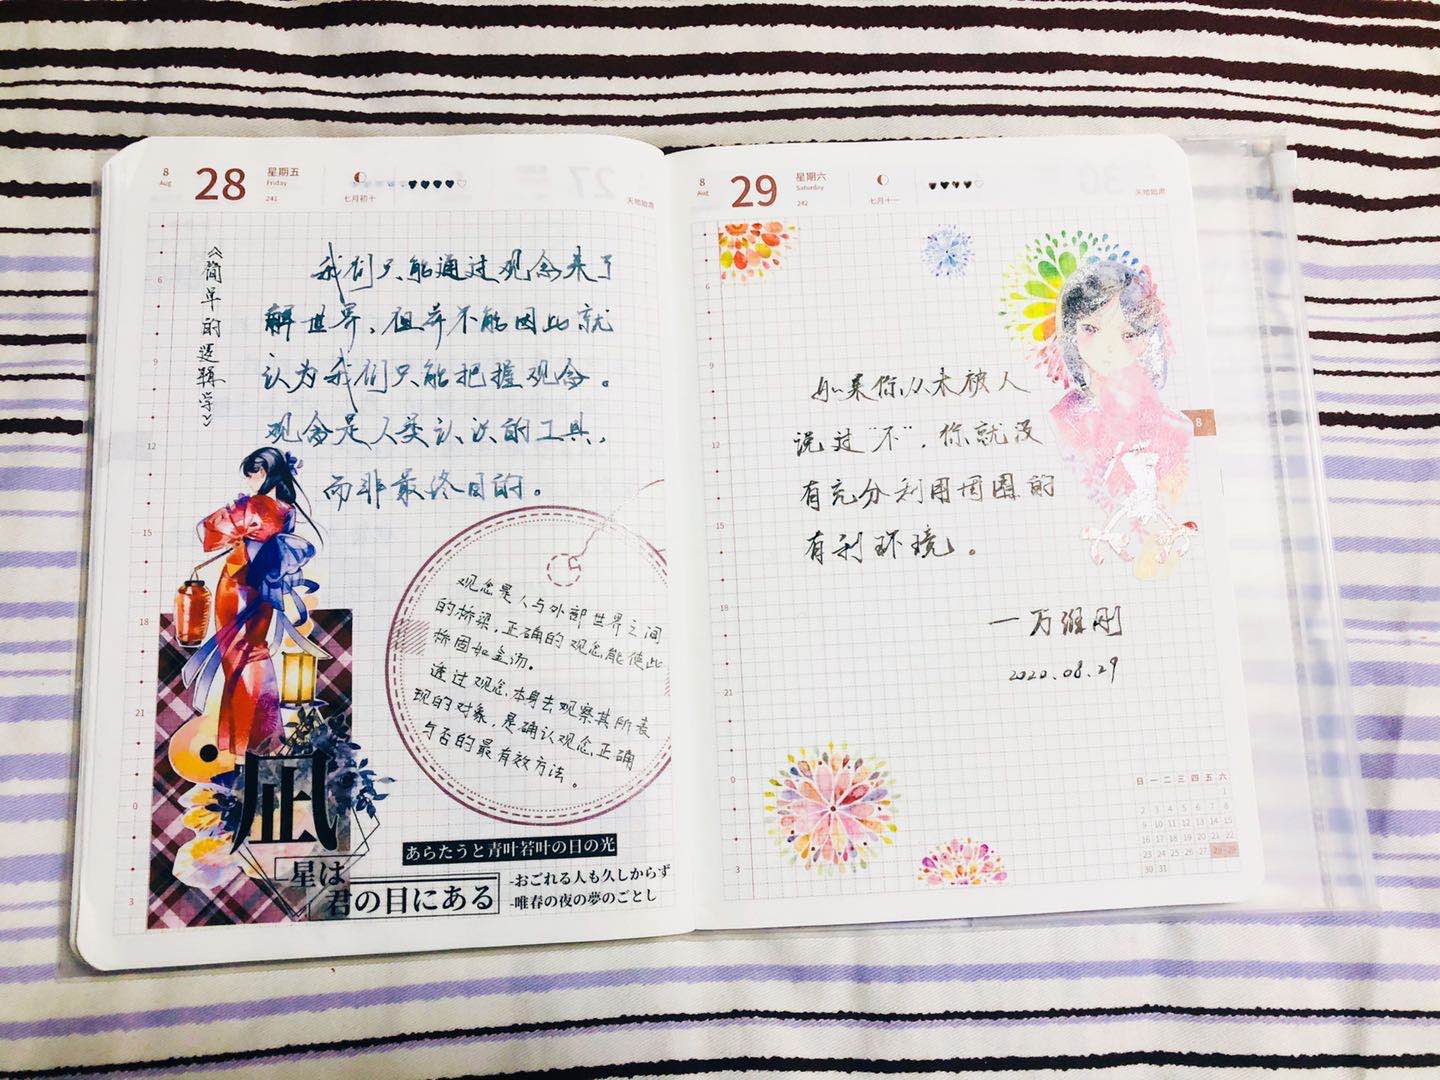 8
Aug
28
星期五
Friday
241
七月初十
天地始肃
《简单的逻辑学》
我们只能通过观念来了
解世界，但并不能因此就
认为我们只能把握观念。
观念是人类认识的工具，
而非最终目的。
观念是人与外部世界之间
的桥梁，正确的观念能使此
桥固如金汤。
透过观念本身去观察其所表
现的对象，是确认观念正确
与否的最有效方法。
凪
星は
君の目にある
あらたうと青叶若叶の日の光
-おごれる人も久しからず
-唯春の夜の夢のごとし
6
9
12
15
18
21
0
3
8
Aug
29
星期六
Saturday
242
七月十一
天地始肃
如果你从未被人
说过“不”，你就没
有充分利用周围的
有利环境。
一万维刚
2020.08.29
6
9
12
15
18
21
0
3
8
日 一 二 三 四 五 六
1
2 3 4 5 6 7 8
9 10 11 12 13 14 15
16 17 18 19 20 21 22
23 24 25 26 27 28 29
30 31